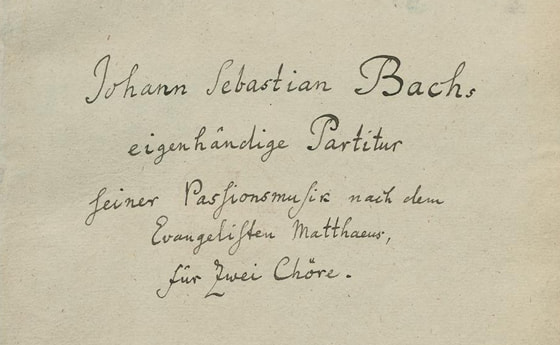 Johann Sebastian Bachs
eigenhändige Partitur
seiner Paſsionsmuſik nach dem
Evangeliſten Matthaeus,
für Zwei Chöre.